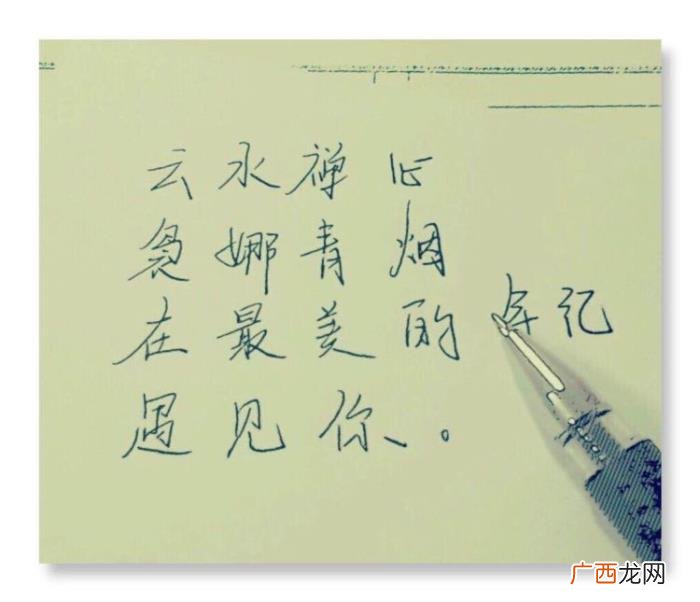 云水禅心
袅娜青烟
在最美的年记
遇见你。
广西龙网